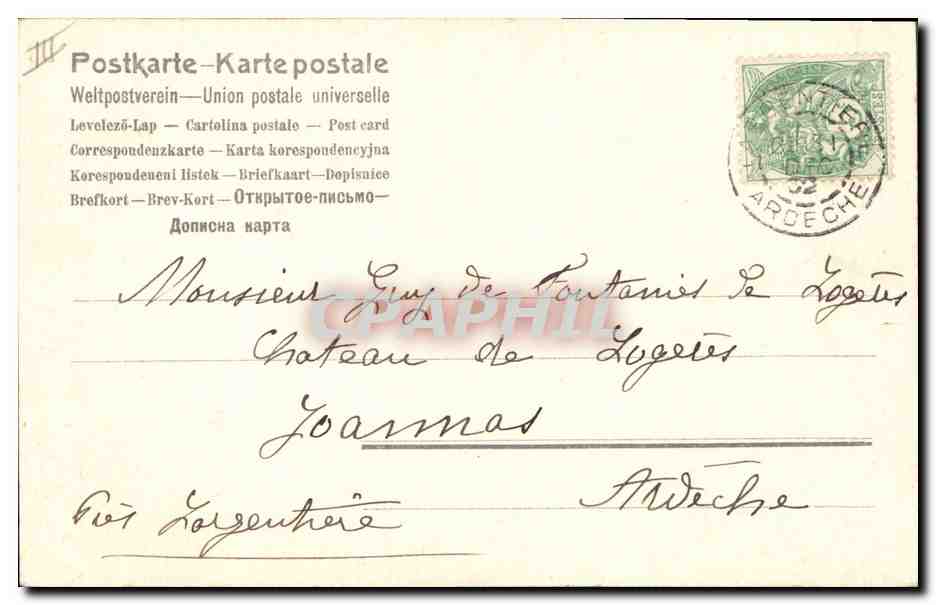 III
Postkarte—Karte postale
Weltpostverein—Union postale universelle
Levelező-Lap — Cartolina postale — Post card
Correspondenzkarte — Karta korespondencyjna
Korespondencni listek — Briefkaart—Dopisnice
Brefkort — Brev-Kort — Открытое-письмо—
Дописна карта
DEC
02
ARDECHE
Monsieur Guy de Fontanies de Logères
Chateau de Logères
Joannas
Ardèche
Près Largentière
CPAPHIL